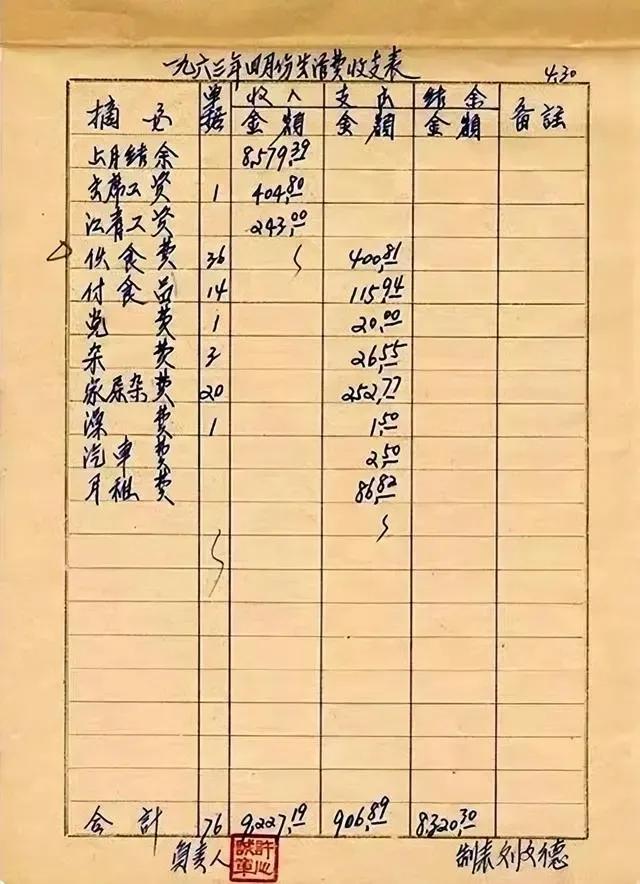 一九六三年四月份生活费收支表
4.30
摘要 单据 收入金额 支出金额 结余金额 备註
上月结余 8,579.39
主席工资 1 404.80
江青工资 243.00
伙食费 36 400.81
付食品 14 115.94
党费 1 20.00
杂费 3 26.55
家庭杂费 20 252.77
澡费 1 1.50
汽車费 2.50
月租费 86.82
合計 76 9,227.19 906.89 8,320.30
負責人 制表 刘文德